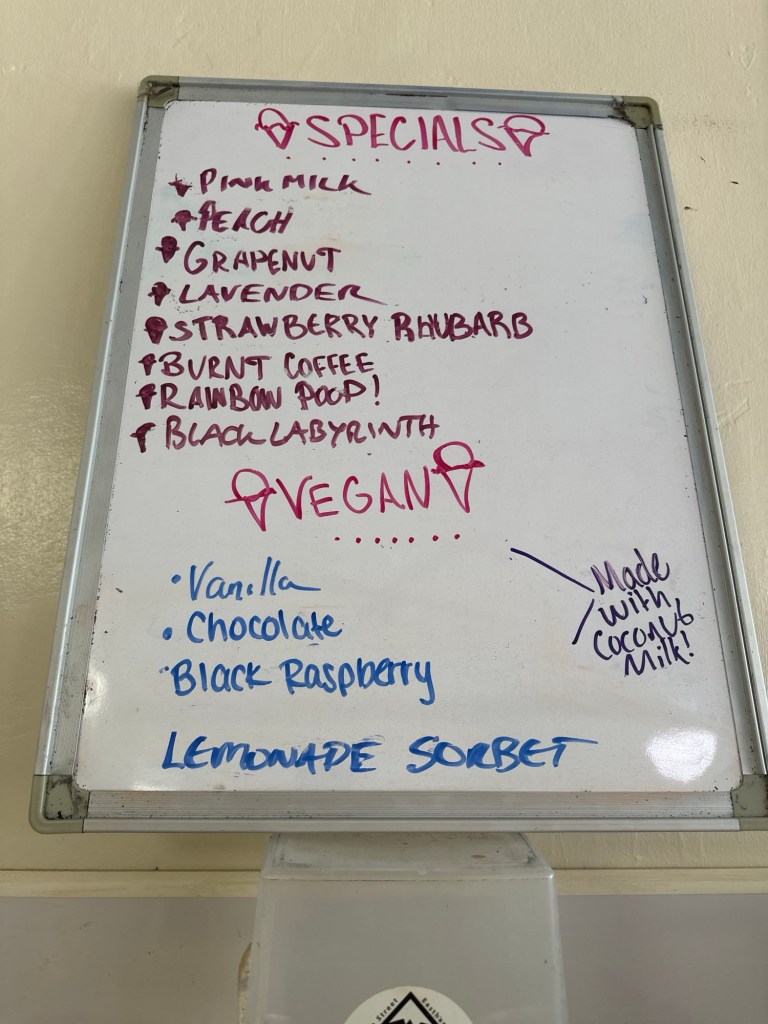 SPECIALS
PINK MILK
PEACH
GRAPENUT
LAVENDER
STRAWBERRY RHUBARB
BURNT COFFEE
RAINBOW POOP!
BLACK LABYRINTH
VEGAN
Vanilla
Chocolate
Black Raspberry
Made
with
Coconut
Milk!
LEMONADE SORBET
Street